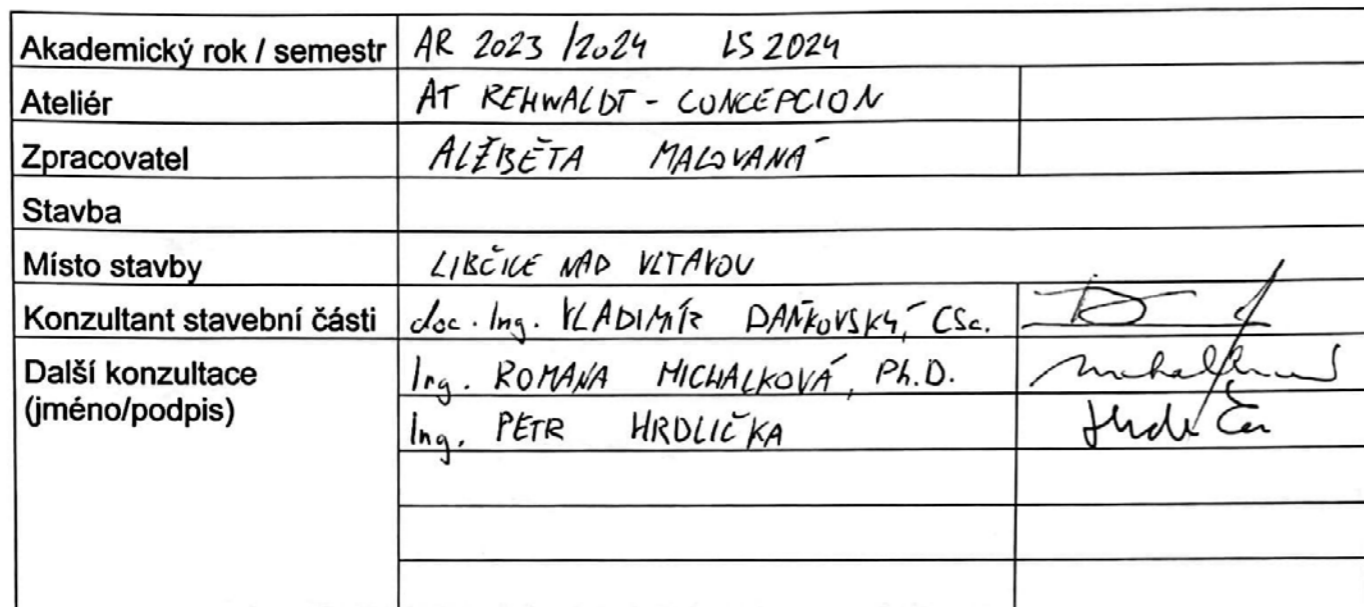 Akademický rok / semestr AR 2023/2024 LS 2024
Ateliér AT REHWALDT - CONCEPCION
Zpracovatel ALŽBĚTA MALOVANÁ
Stavba
Místo stavby LIBČICE NAD VLTAVOU
Konzultant stavební části doc. Ing. VLADIMÍR DAŇKOVSKÝ, CSc.
Další konzultace Ing. ROMANA MICHALKOVÁ, Ph.D.
(jméno/podpis) Ing. PETR HRDLIČKA